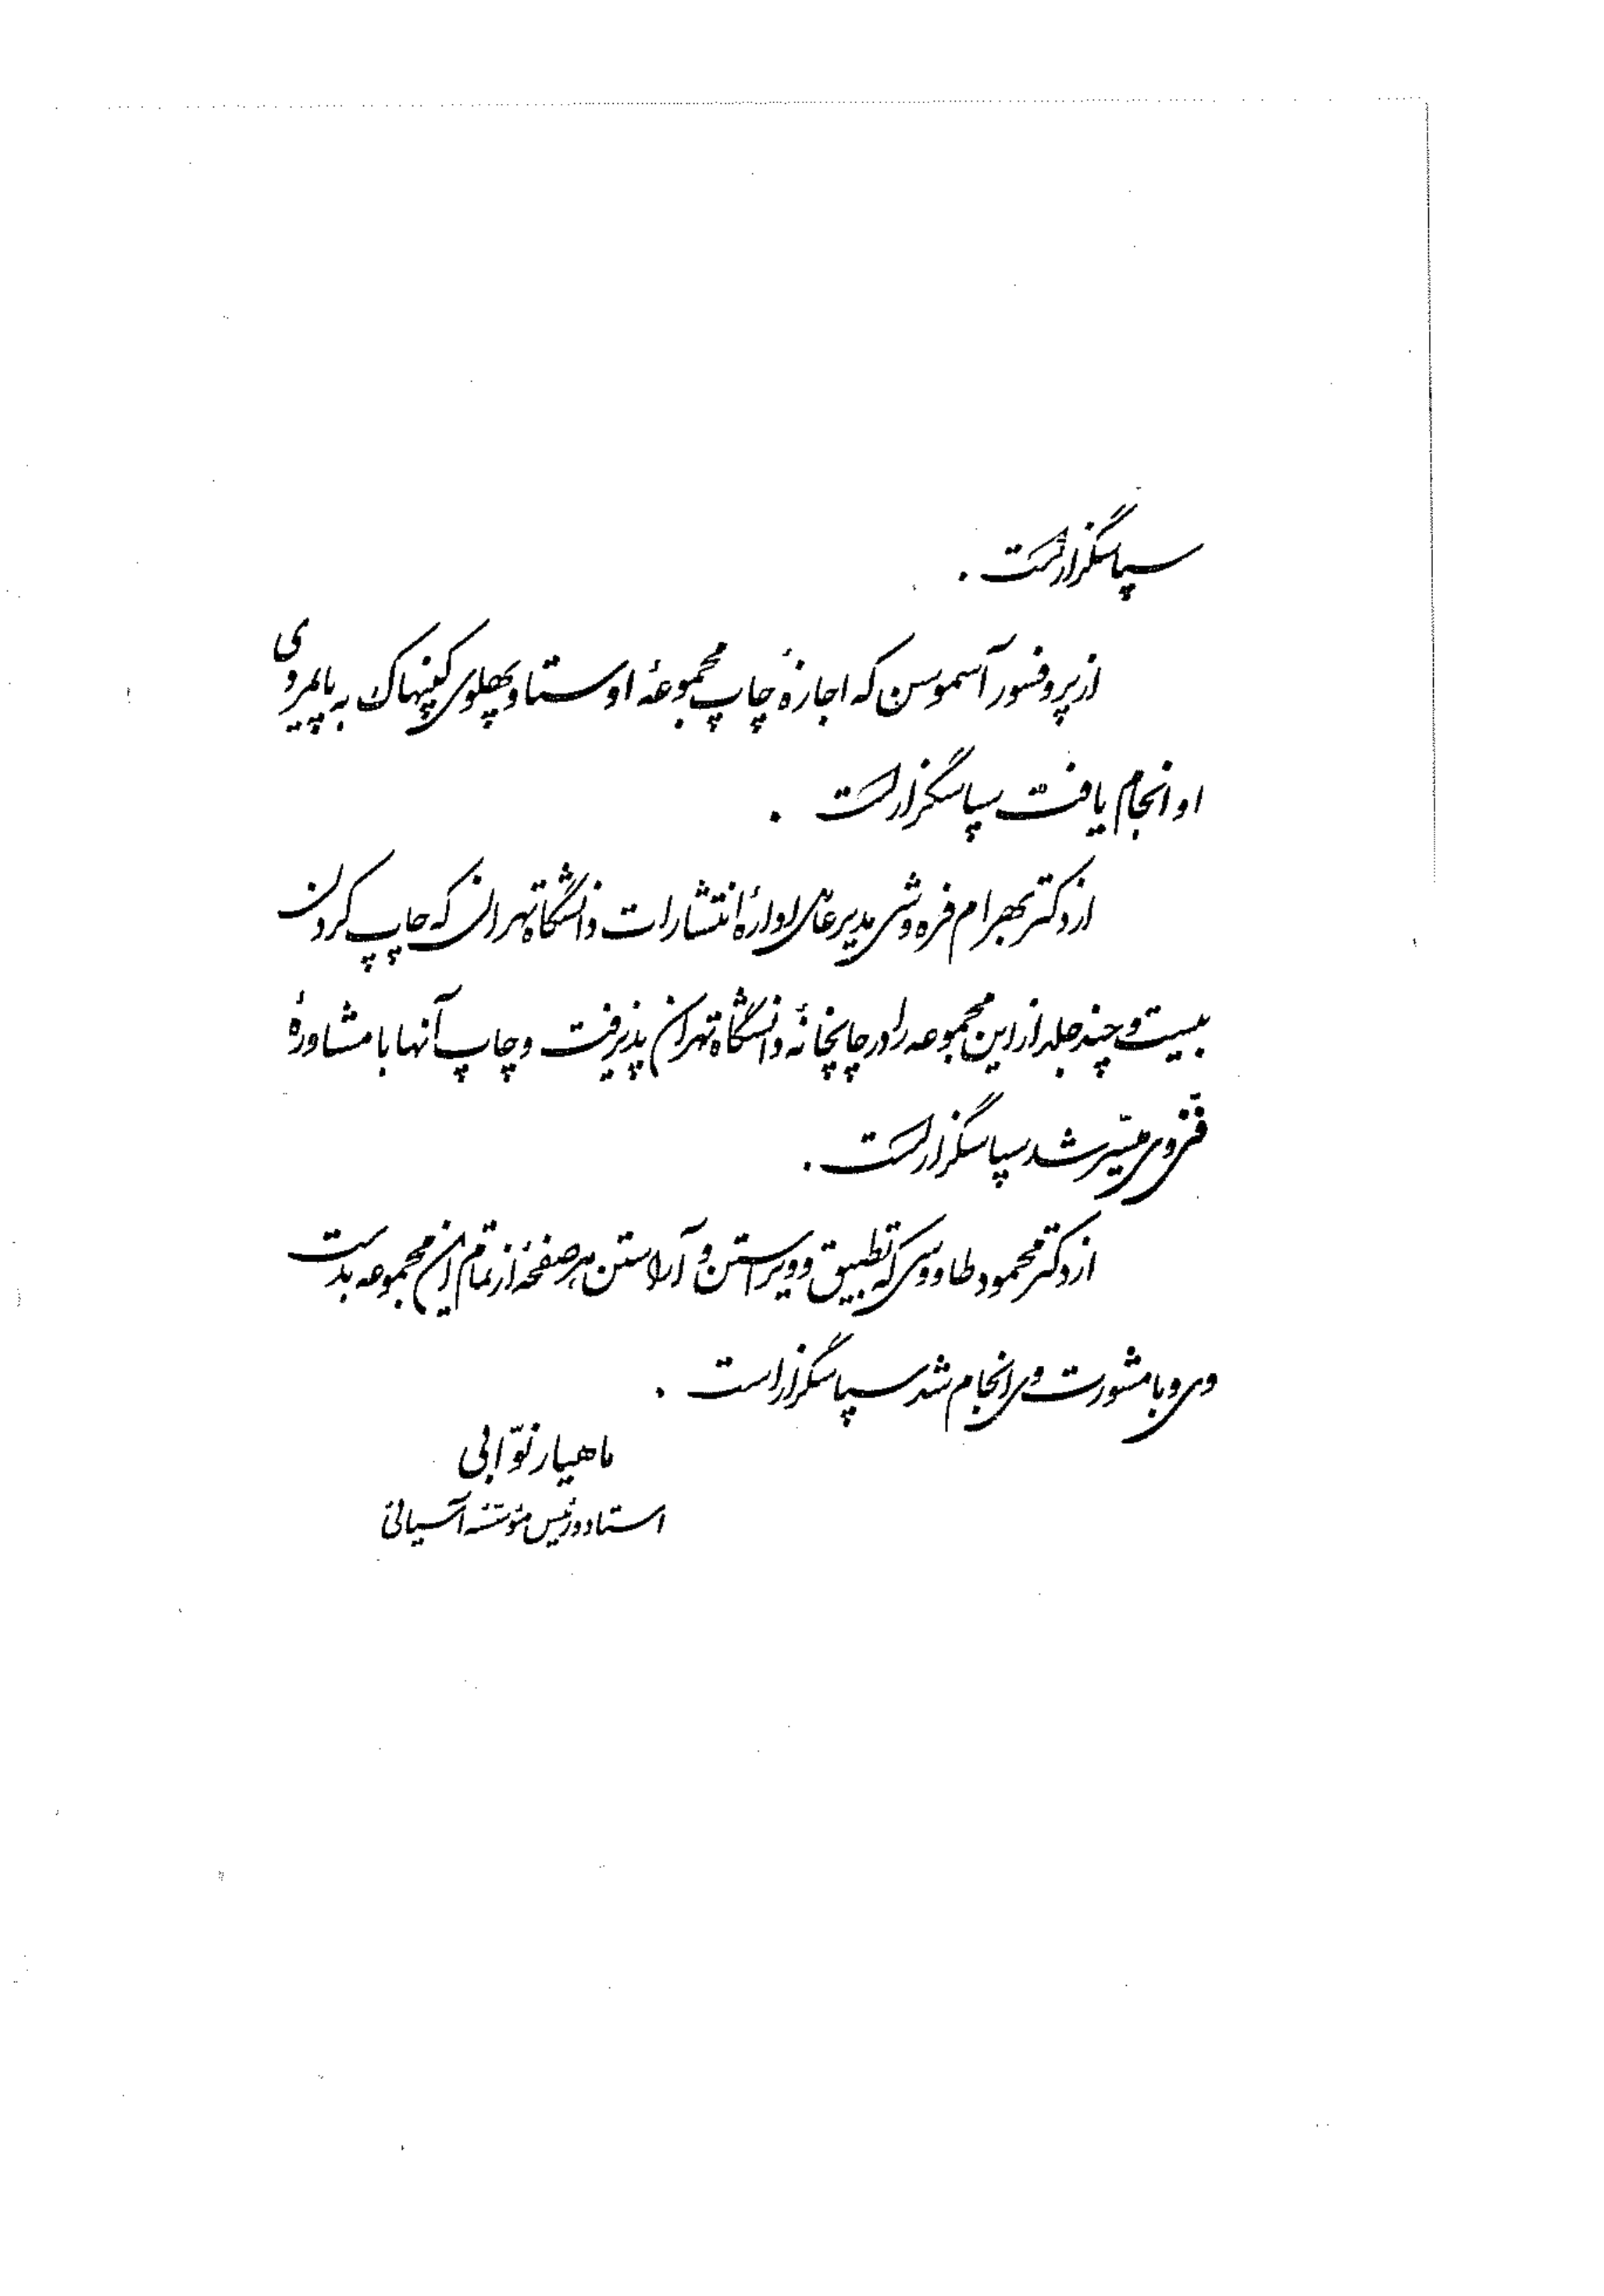 سپاسگزارست .
از پروفسور آسموسن که اجازهٔ چاپ مجموعهٔ اوستا و پهلوی کپنهاک به پایمردی
او انجام یافت سپاسگزارست .
از دکتر بهرام فره‌وشی مدیر عامل ادارهٔ انتشارات دانشگاه تهران که چاپ کردن
بیست و چند جلد از این مجموعه را در چاپخانهٔ دانشگاه تهران پذیرفت و چاپ آنها با مشاورهٔ
فنّی وی میسّر شد سپاسگزارست .
از دکتر محمود طاووسی که تطبیق و ویراستن و آراستن هر صفحهٔ از تمام این مجموعه بدست
وی و با مشورت وی انجام شد سپاسگزار است .
ماهیار نوّابی
استاد و رئیس مؤسسهٔ آسیائی